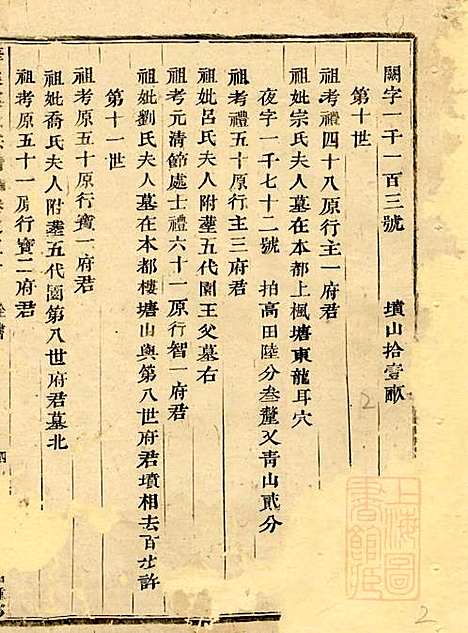 闕字一千一百三號 墳山拾壹畝
第十世
祖考禮四十八原行主一府君
祖妣宗氏夫人墓在本都上楓塘東龍耳穴
夜字一千七十二號 拍高田陸分叁釐又青山貳分
祖考禮五十原行主三府君
祖妣呂氏夫人附塟五代園王父墓右
祖考元清節處士禮六十一原行智一府君
祖妣劉氏夫人墓在本都樓塘山與第八世府君墳相去百步許
第十一世
祖考原五十原行寶一府君
祖妣喬氏夫人附塟五代園第八世府君墓北
祖考原五十一原行寶二府君
四
上海圖書館藏
2
2